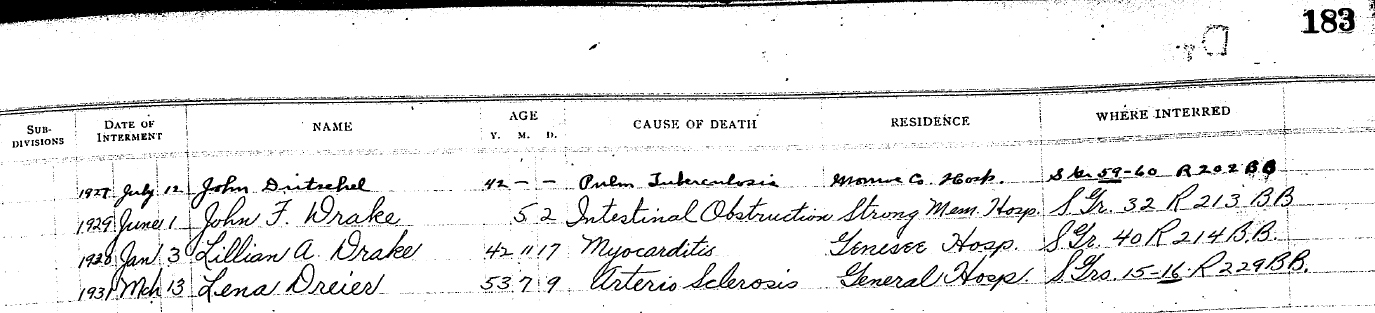 183
D
SUB-DIVISIONS DATE OF INTERMENT NAME AGE Y. M. D. CAUSE OF DEATH RESIDENCE WHERE INTERRED
1927 July 12 John Dritschel 42 – – Pulm Tuberculosis Monroe Co. Hosp. S Gr 59-60 R 202 BB
1929 June 1 John F. Drake 5 2 Intestinal Obstruction Strong Mem. Hosp. S Gr. 32 R 213 BB
1928 Jan 3 Lillian A Drake 42 11 17 Myocarditis Genesee Hosp. S Gr. 40 R 214 B.B.
1931 Mch 13 Lena Dreier 53 7 9 Arterio Sclerosis General Hosp. S Grs. 15-16 R 229 BB.